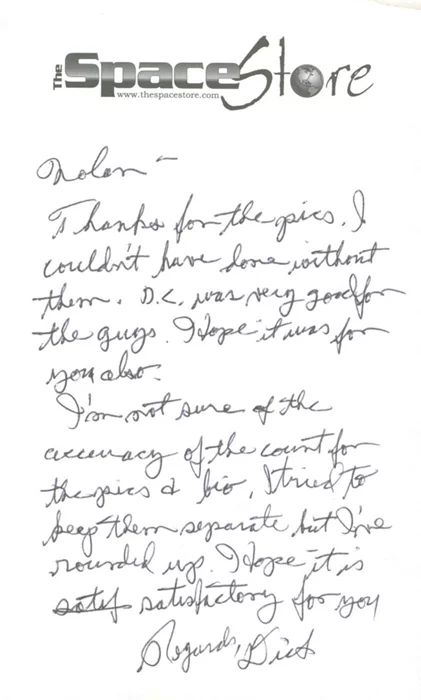 The Space Store
www.thespacestore.com
Nolan -
Thanks for the pics. I
couldn't have done without
them. D.C. was very good for
the guys. I Hope it was for
you also.
I'm not sure of the
accuracy of the count for
the pics & bio, I tried to
keep them separate but I've
rounded up. I Hope it is
satisf satisfactory for you
Regards, Dick